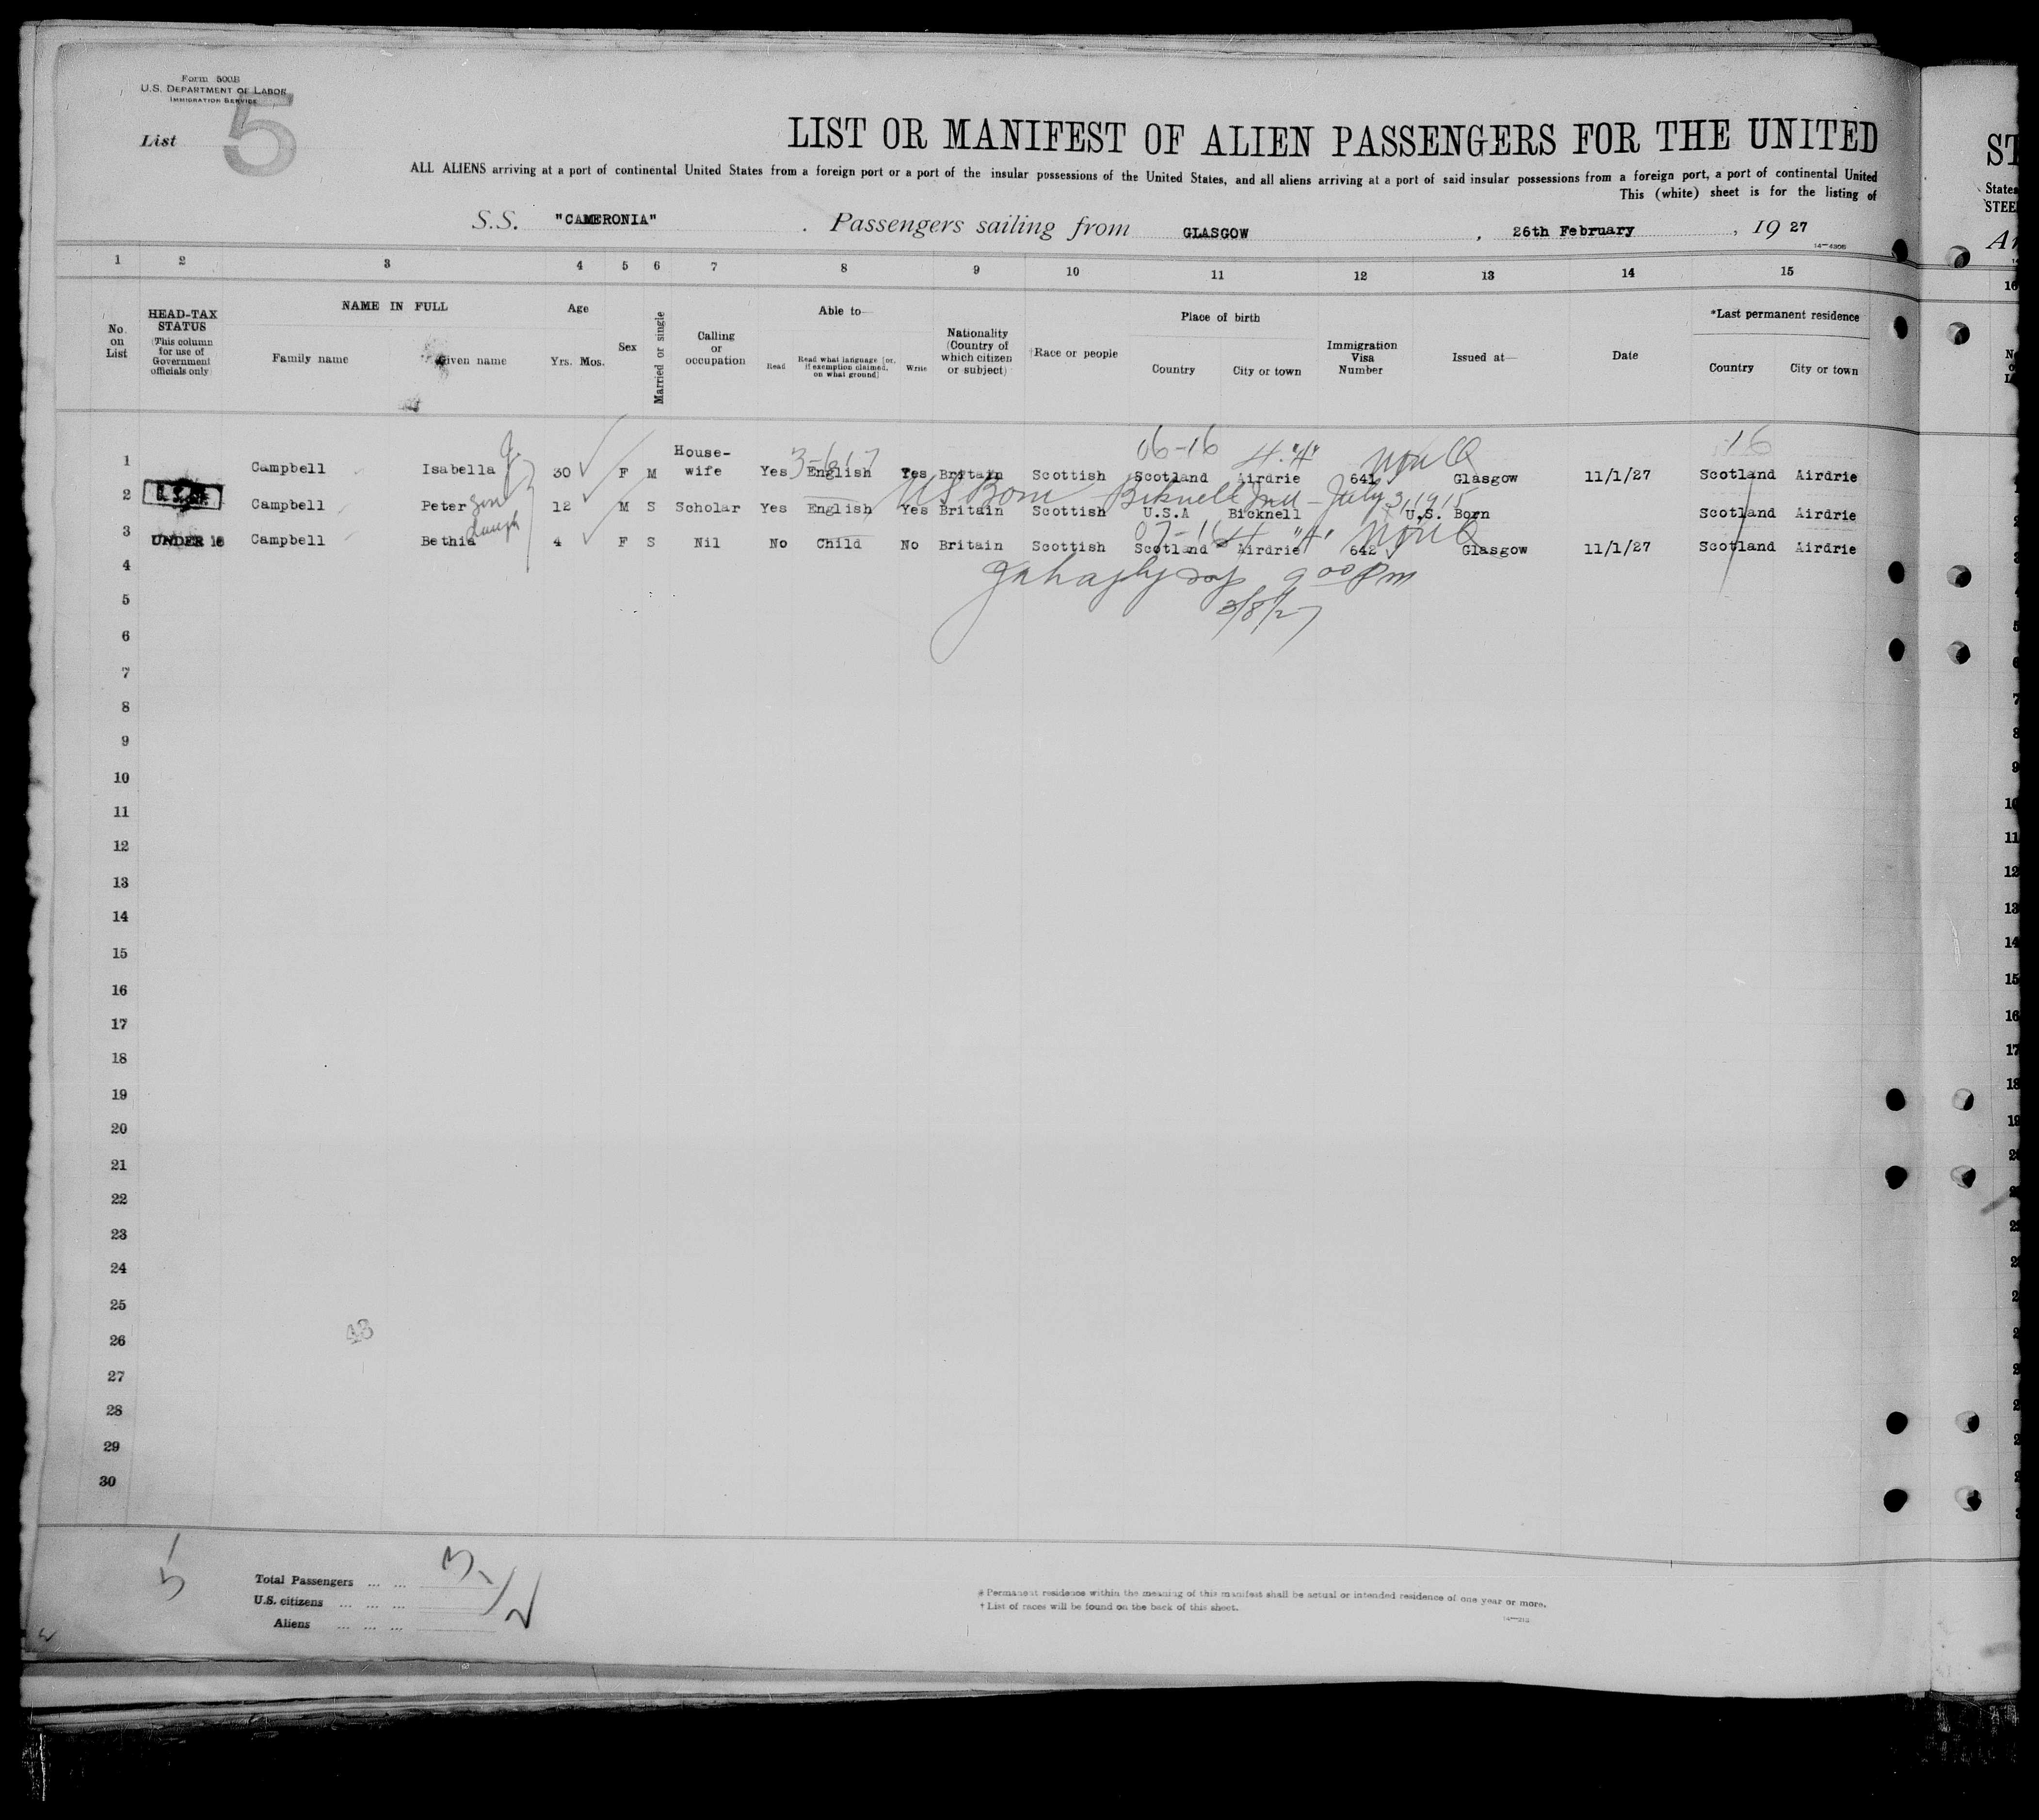 Form 500B
U.S. DEPARTMENT OF LABOR
IMMIGRATION SERVICE
List 5
LIST OR MANIFEST OF ALIEN PASSENGERS FOR THE UNITED
ALL ALIENS arriving at a port of continental United States from a foreign port or a port of the insular possessions of the United States, and all aliens arriving at a port of said insular possessions from a foreign port, a port of continental United
This (white) sheet is for the listing of
S.S. "CAMERONIA" . Passengers sailing from GLASGOW , 26th February , 19 27
1 2 3 4 5 6 7 8 9 10 11 12 13 14 15
No. on List
HEAD-TAX STATUS (This column for use of Government officials only)
NAME IN FULL
Family name Given name
Age
Yrs. Mos.
Sex
Married or single
Calling or occupation
Able to—
Read Read what language [or, if exemption claimed, on what ground] Write
Nationality (Country of which citizen or subject)
†Race or people
Place of birth
Country City or town
Immigration Visa Number
Issued at—
Date
*Last permanent residence
Country City or town
06-16 4."A" Non Q 16
1 Campbell Isabella 30 F M House-wife Yes English Yes Britain Scottish Scotland Airdrie 641 Glasgow 11/1/27 Scotland Airdrie
US Born Bicknell Ind - July 3, 1915
2 Campbell Peter son 12 M S Scholar Yes English Yes Britain Scottish U.S.A Bicknell U.S. Born Scotland Airdrie
07-16 4 "A" Non Q
3 UNDER 16 Campbell Bethia daugh 4 F S Nil No Child No Britain Scottish Scotland Airdrie 642 Glasgow 11/1/27 Scotland Airdrie
4 9 00 Pm
5 3/8/27
6
7
8
9
10
11
12
13
14
15
16
17
18
19
20
21
22
23
24
25
26
27
28
29
30
Total Passengers ... ...
U.S. citizens ... ... ...
Aliens ... ... ...
* Permanent residence within the meaning of this manifest shall be actual or intended residence of one year or more.
† List of races will be found on the back of this sheet.